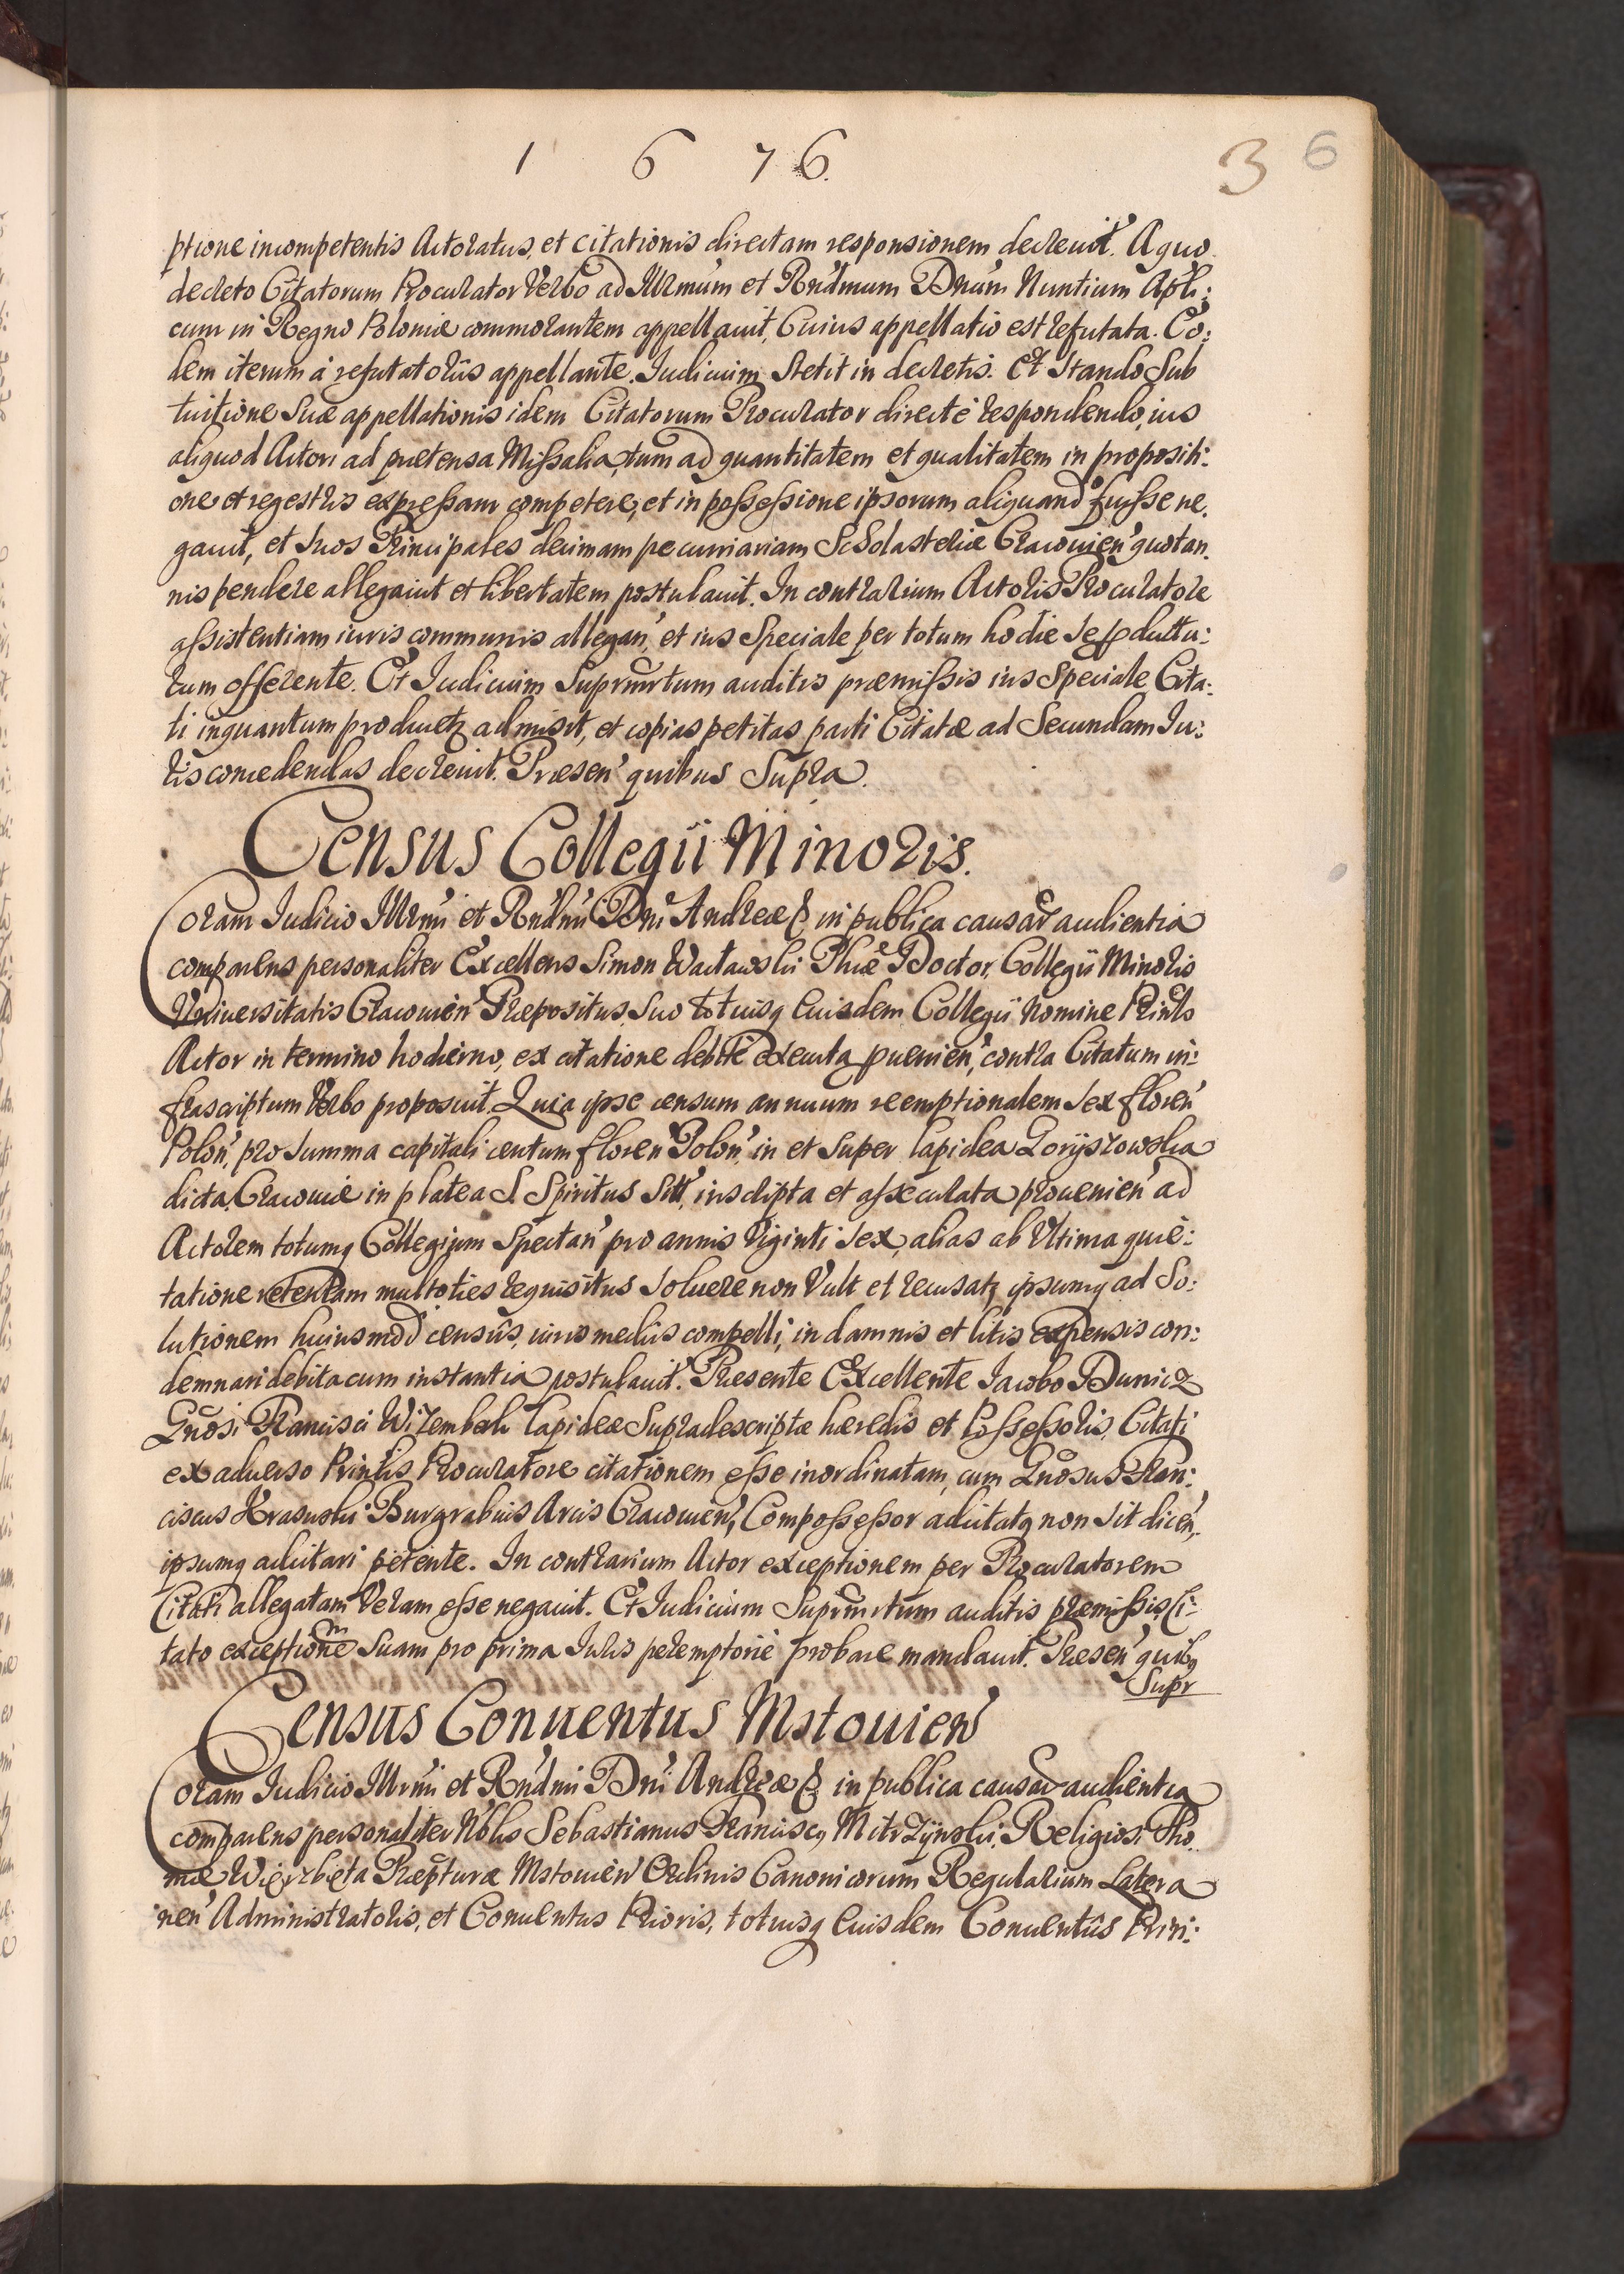 1 6 7 6.
3 6
ptione incompetentis Actoratus, et citationis directam responsionem decreuit. A quo
decreto Citatorum Procurator Verbo ad Illrmum et Rndmum Dnum Nuntium Apli:
cum in Regno Poloniæ commorantem appellauit, Cuius appellatio est refutata. Eo:
dem iterum à refutatoriis appellante. Iudicium Stetit in decretis. Et Stando Sub
tuitione Suæ appellationis idem Citatorum Procurator directè respondendo, ius
aliquod Actori ad prætensa Missalia, tum ad quantitatem et qualitatem in propositi:
one et regestris expressam competere, et in possessione ipsorum aliquando fuisse ne.
gauit, et Suos Principales decimam pecuniariam Scholasteriæ Cracouien' quotan.
nis pendere allegauit et libertatem postulauit. In contrarium Actoris Procuratore
assistentiam iuris communis allegan', et ius Speciale per totum hodie se productu:
rum offerente. Et Iudicium Suprmrtum auditis præmissis ius Speciale Cita:
ti inquantum producetz admisit, et copias petitas parti Citatæ ad Secundam Iu:
ris concedendas decreuit. Præsen' quibus Supra.
Census Collegii Minoris.
Coram Iudicio Illrmi et Rndmi Dni Andreæ & in publica causar audientia
comparens personaliter Excellens Simon Wactawski Phiæ Doctor, Collegii Minoris
Vniuersitatis Cracouien' Præpositus, Suo totiusq Eiusdem Collegii Nomine Prinlo
Actor in termino hodierno, ex citatione debitè executa puenien', contra Citatum in:
frascriptum Verbo proposuit. Quia ipse censum annuum reemptionalem Sex floren'
Polon', pro Summa capitali centum floren' Polon', in et Super lapidea Goryszowska
dicta, Cracouiæ in platea S. Spiritus Sitt', inscripta et assecurata prouenien' ad
Actorem totumq Collegium Spectan' pro annis Viginti Sex, alias ab Vltima quie:
tatione retentam multoties requisitus Soluere non Vult et recusatz, ipsumq ad So:
lutionem huiusmodi censûs, iuris mediis compelli, in damnis et litis expensis con:
demnari debita cum instantia postulauit. Præsente Excellente Iacobo Dunicz
Gnosi Francisci Witemberk lapideæ Supradescriptæ hæredis et Possessoris, Citati
ex aduerso Prinlis Procuratore citationem esse inordinatam, cum Gnosus Fran:
ciscus Krasuski Burgrabius Arcis Cracouien', Compossessor adcitatq non sit dicen',
ipsumq adcitari petente. In contrarium Actor exceptionem per Procuratorem
Citati allegatam Veram esse negauit. Et Iudicium Suprmrtum auditis præmissis, Ci:
tato exceptionem Suam pro prima Iuris peremptoriè probare mandauit. Præsen' quibq
Supr
Census Conuentus Mstouien'
Coram Iudicio Illrmi et Rndmi Dni Andreæ & in publica causar audientia
comparens personaliter Nblis Sebastianus Franciscq Mitrzyński, Religiosi Tho.
mæ Wierzbięta Præpturæ Mstouien' Ordinis Canonicorum Regularium Latera
nen' Administratoris, et Conuentus Prioris, totiusq Eiusdem Conuentûs Prin: